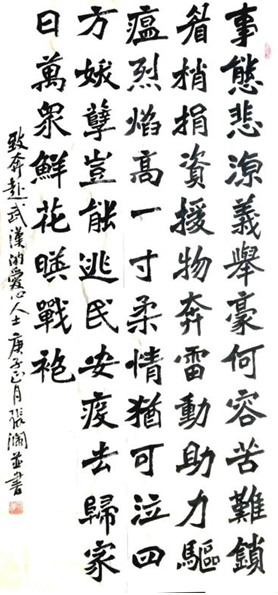 事態悲涼義舉豪何容苦難鎖
眉梢捐資援物奔雷動助力驅
瘟烈焰高一寸柔情猶可泣四
方妖孽豈能逃民安疫去歸家
日萬衆鮮花暎戰袍
致奔赴武漢的愛心人士庚子正月張瀾並書